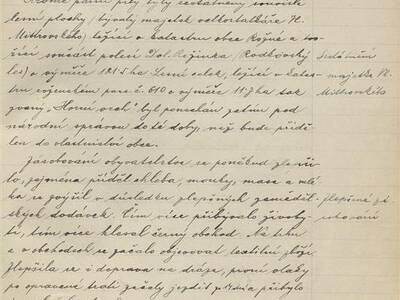 Kromě parní pily byly sestátněny souvislé
lesní plochy (bývalý majetek velkostatkáře H.
Mittrovského) ležící v katastru obce Rožné a tvo-
řící součást polesí Dol. Rožínka (Rodkovský
les) o výměře 181.5 ha. Lesní celek, ležící v katas-
tru rožeňském parc. č. 610 o výměře ha tak
zvaný „Horní vrch" byl ponechán zatím pod
národní správou do té doby, než bude přidě-
len do vlastnictví obce.
Zásobování obyvatelstva se poněkud zlepši-
lo, zejména příděl chleba, mouky, masa a mlé-
ka se zvýšil v důsledku zlepšených zeměděl-
ských dodávek. Čím více přibývalo životy-
tí, tím více klesal černý obchod. Na trhu
a v obchodech se začalo objevovat textilní zboží.
Zlepšila se i doprava na dráze, první vlaky
po opravené trati začaly jezdit přibylo
Sestátnění
majetku H.
Mittrovského
Zlepšené zá-
sobování